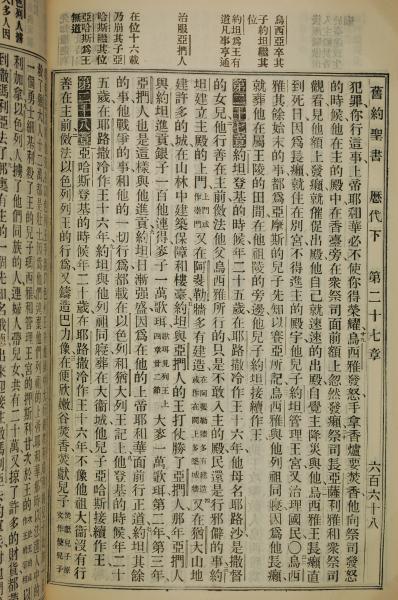 舊約聖書 歷代下 第二十七章 六百六十八
犯罪你行這事上帝耶和華必不使你得榮耀烏西雅發怒手拿香爐要焚香他向祭司發怒
的時候他在主的殿中在香臺旁在衆祭司面前額上忽然發癩祭司長亞薩利雅和衆祭司
觀看見他額上發癩就催促出殿他自己就速速的出殿自覺主降災與他烏西雅王長癩直
到死日因爲長癩就住在別宮不得進主的殿宇他兒子約坦管理王宮又治理國民○烏西
雅其餘始末的事都爲亞摩斯的兒子先知以賽亞所記烏西雅與他列祖同寢因爲他長癩
就葬他在屬王陵的田間在他祖陵的旁邊他兒子約坦接續作王
烏西亞卒其
子約坦繼其
位
第二十七章約坦登基的時候年二十五歲在耶路撒冷作王十六年他母名耶路沙是撒督
約坦爲王有
道凡事亨通
的女兒他行善在主前傚法他父烏西雅所行的只是不敢入主的殿民還是行邪僻的事約
坦建立主殿的上門上門或作高門又在阿裴勒牆多有建造又在猶大山地
建許多的城在山林中建築保障和樓臺約坦與亞捫人的王打仗勝了亞捫人那年亞捫人
治服亞捫人
與約坦進貢銀子一百他連得麥子一萬歌珥歌珥見列王上四章廿二節大麥一萬歌珥第二年第三年
亞捫人也是這樣與他進貢約坦日漸强盛因爲在他的上帝耶和華面前行正道約坦其餘
的事他戰爭的事和他的一切行爲都載在以色列和猶大列王記上他登基的時候年二十
五歲在耶路撒冷作王十六年約坦與他列祖同寢葬在大衞城他兒子亞哈斯接續作王
在位十六載
乃崩其子亞
哈斯繼其位
亞哈斯爲王
無道
第二十八章亞哈斯登基的時候年二十歲在耶路撒冷作王十六年不像他祖大衞沒有行
善在主前傚法以色列王的行爲又鑄造巴力像在便欣嫩谷焚香焚獻兒子